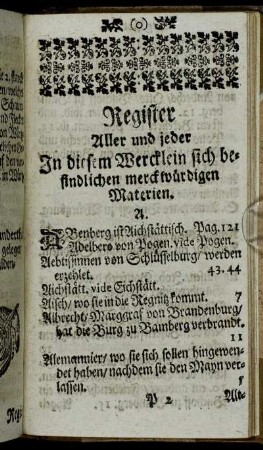 (o)
Register
Aller und jeder
In diesem Wercklein sich be-
findlichen merckwürdigen
Materien.
A.
ABenberg ist Aichstättisch. Pag. 121
Adelbero von Pogen, vide Pogen.
Aebtissinnen von Schlüsselburg / werden
erzehlet. 43. 44
Aichstätt, vide Eichstätt.
Aisch / wo sie in die Regnitz kommt. 7
Albrecht / Marggraf von Brandenburg /
hat die Burg zu Bamberg verbrandt.
11
Alemannier / wo sie sich sollen hingewen-
det haben / nachdem sie den Mayn ver-
lassen.
P 2